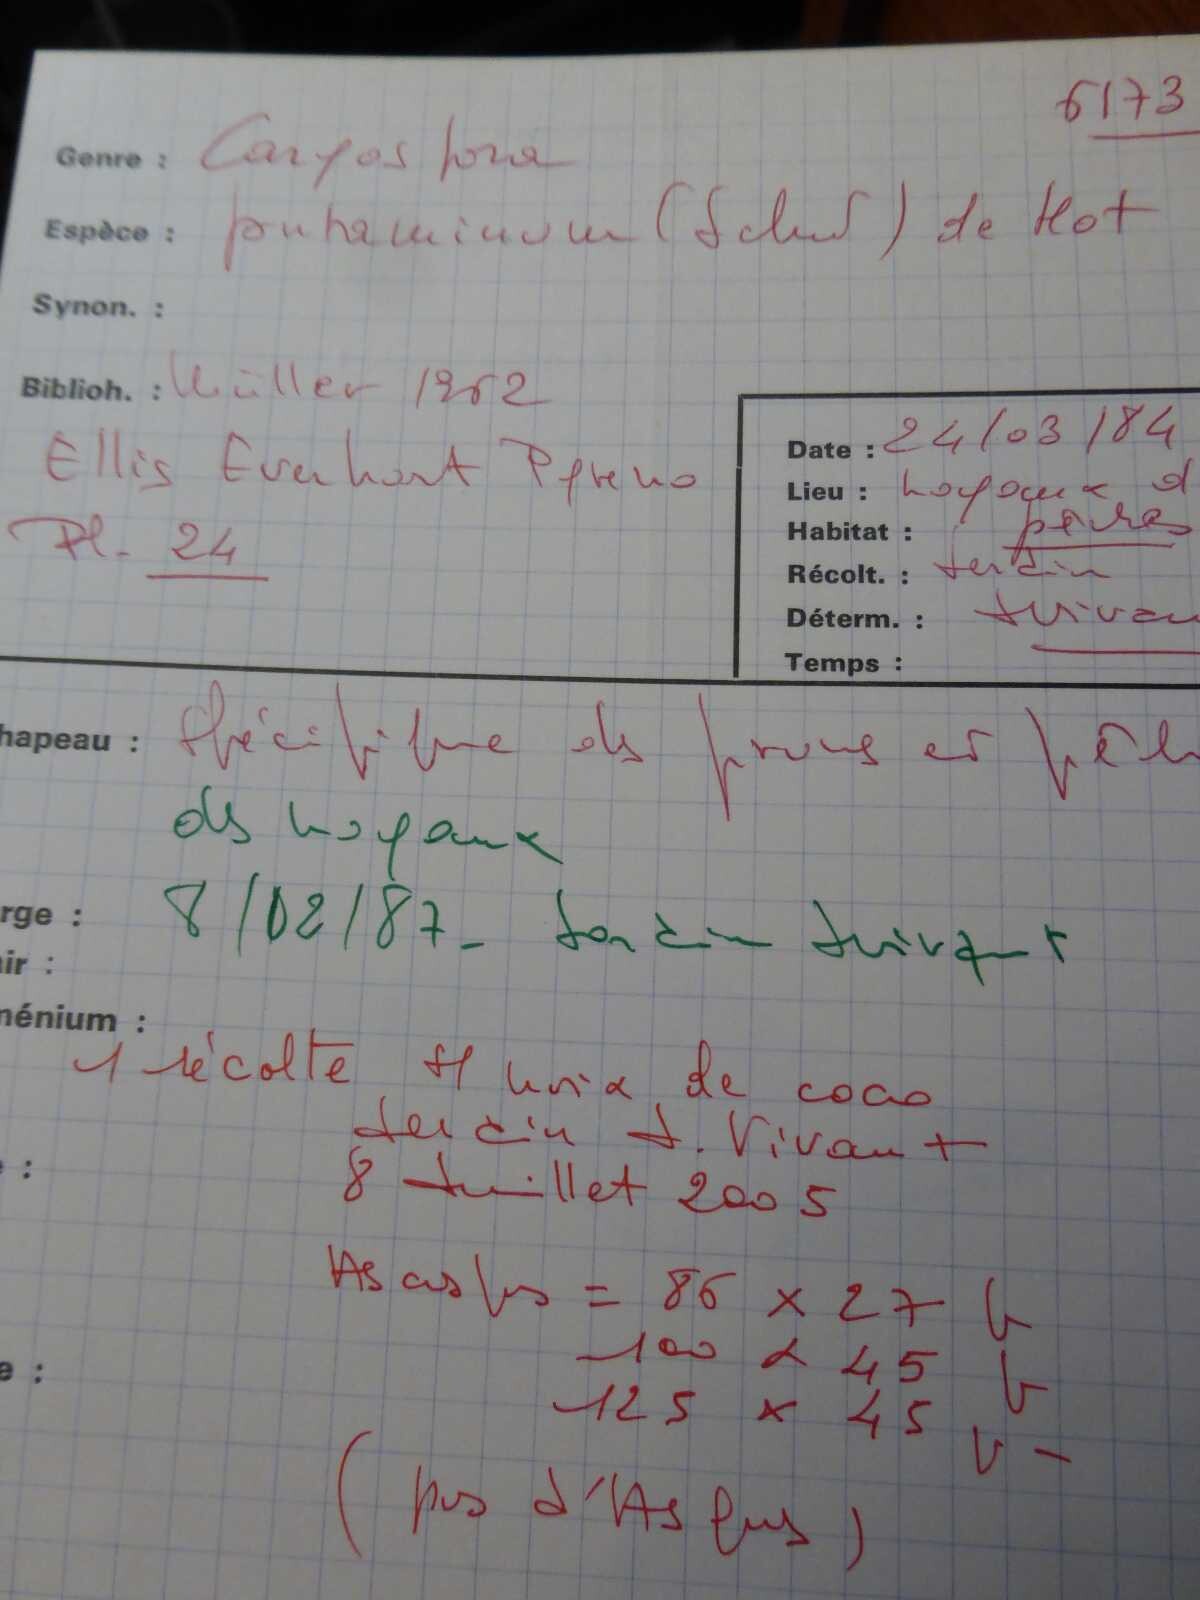 6173
Genre : Caryospora
Espèce : putaminum (Schw) de Not
Synon. :
Biblioh. : Müller 1962
Ellis Everhart Pyreno
Pl. 24
Date : 24/03/84
Lieu : noyaux d
Habitat : pêches
Récolt. : Jardin
Déterm. : J Vivan
Temps :
hapeau : Spécifique ds prunes et pêch
ds noyaux
rge : 8/02/87 - Jardin J Vivant
air :
ménium :
1 récolte s/ noix de coco
Jardin J. Vivant
8 Juillet 2005
e :
Ascosps = 86 x 27 b
100 x 45 b
e :
125 x 45 v -
( pas d'Asques )